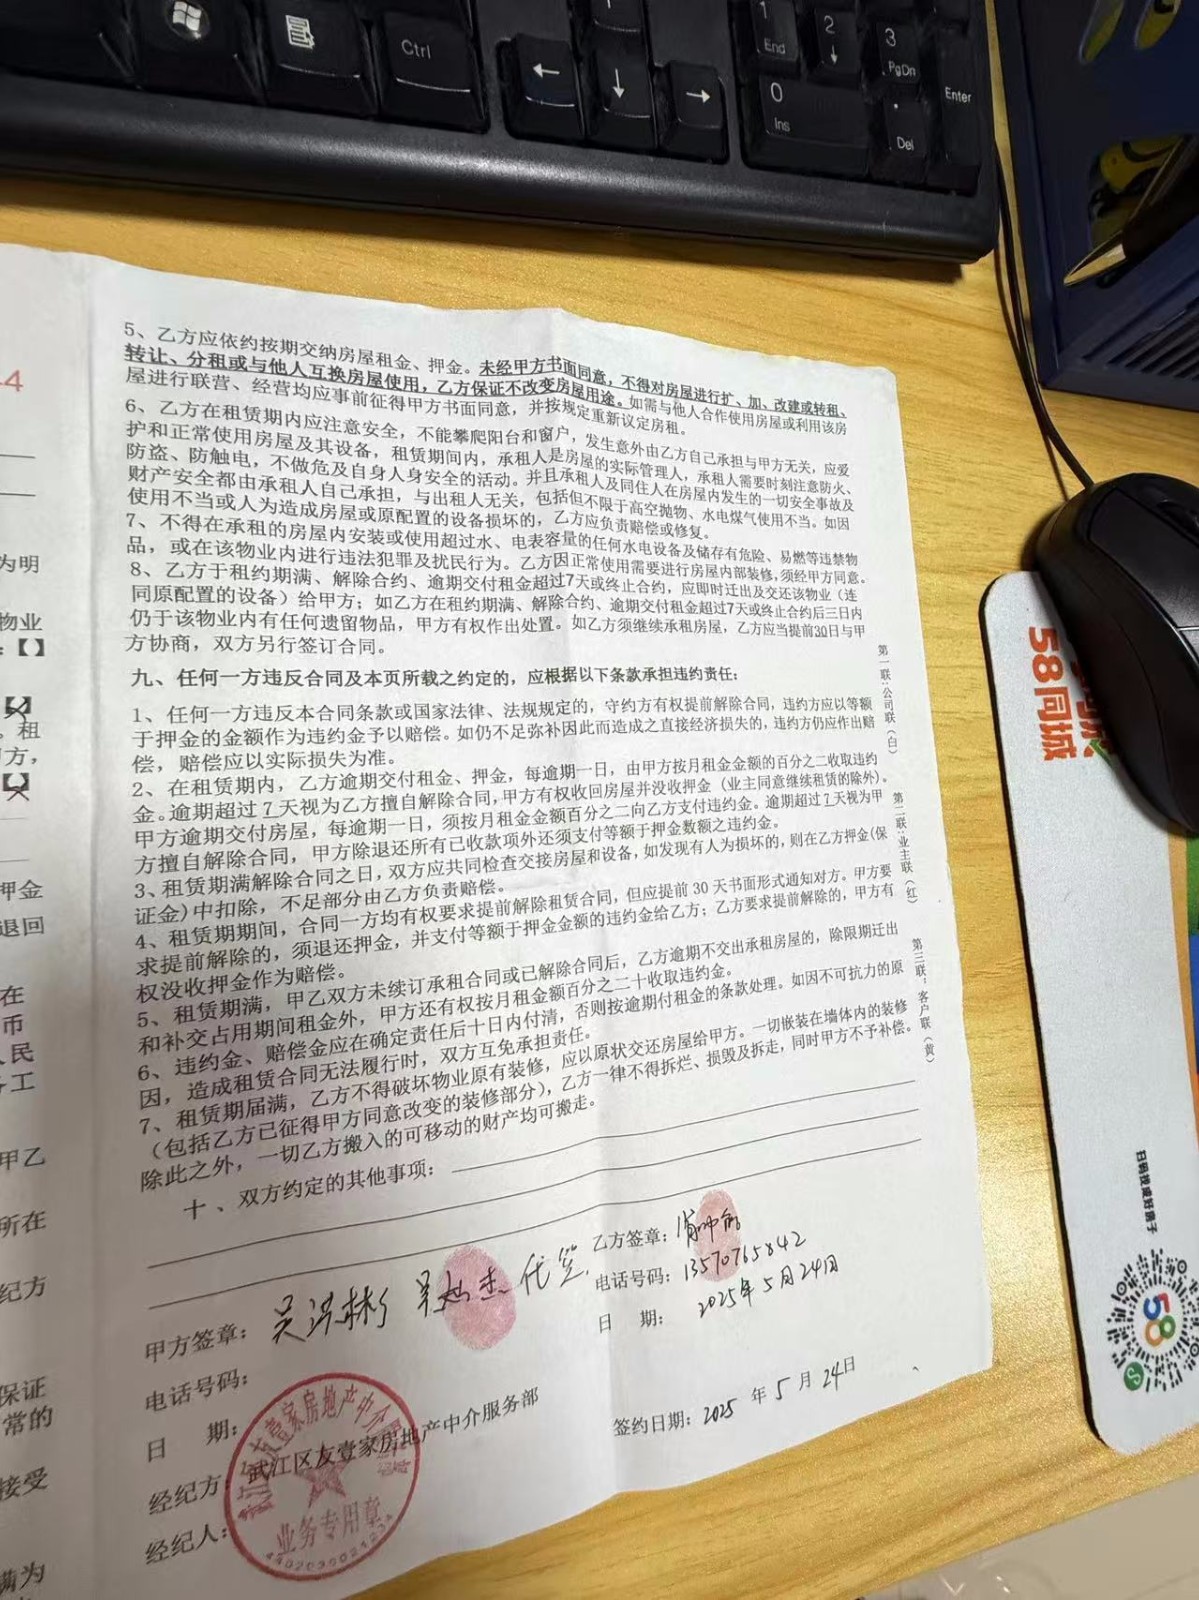 Ctrl
1
End
2
3
PgDn
0
Ins
Del
Enter
5、乙方应依约按期交纳房屋租金、押金。未经甲方书面同意，不得对房屋进行扩、加、改建或转租、
转让、分租或与他人互换房屋使用，乙方保证不改变房屋用途。如需与他人合作使用房屋或利用该房
屋进行联营、经营均应事前征得甲方书面同意，并按规定重新议定房租。
6、乙方在租赁期内应注意安全，不能攀爬阳台和窗户，发生意外由乙方自己承担与甲方无关，应爱
护和正常使用房屋及其设备，租赁期间内，承租人是房屋的实际管理人，承租人需要时刻注意防火、
防盗、防触电，不做危及自身人身安全的活动。并且承租人及同住人在房屋内发生的一切安全事故及
财产安全都由承租人自己承担，与出租人无关，包括但不限于高空抛物、水电煤气使用不当。如因
使用不当或人为造成房屋或原配置的设备损坏的，乙方应负责赔偿或修复。
7、不得在承租的房屋内安装或使用超过水、电表容量的任何水电设备及储存有危险、易燃等违禁物
品，或在该物业内进行违法犯罪及扰民行为。乙方因正常使用需要进行房屋内部装修，须经甲方同意。
8、乙方于租约期满、解除合约、逾期交付租金超过7天或终止合约，应即时迁出及交还该物业（连
同原配置的设备）给甲方；如乙方在租约期满、解除合约、逾期交付租金超过7天或终止合约后三日内
仍于该物业内有任何遗留物品，甲方有权作出处置。如乙方须继续承租房屋，乙方应当提前30日与甲
方协商，双方另行签订合同。
九、任何一方违反合同及本页所载之约定的，应根据以下条款承担违约责任：
1、任何一方违反本合同条款或国家法律、法规规定的，守约方有权提前解除合同，违约方应以等额
于押金的金额作为违约金予以赔偿。如仍不足弥补因此而造成之直接经济损失的，违约方仍应作出赔
偿，赔偿应以实际损失为准。
2、在租赁期内，乙方逾期交付租金、押金，每逾期一日，由甲方按月租金金额的百分之二收取违约
金。逾期超过7天视为乙方擅自解除合同，甲方有权收回房屋并没收押金（业主同意继续租赁的除外）。
甲方逾期交付房屋，每逾期一日，须按月租金金额百分之二向乙方支付违约金。逾期超过7天视为甲
方擅自解除合同，甲方除退还所有已收款项外还须支付等额于押金数额之违约金。
3、租赁期满解除合同之日，双方应共同检查交接房屋和设备，如发现有人为损坏的，则在乙方押金(保
证金)中扣除，不足部分由乙方负责赔偿。
4、租赁期期间，合同一方均有权要求提前解除租赁合同，但应提前30天书面形式通知对方。甲方要
求提前解除的，须退还押金，并支付等额于押金金额的违约金给乙方；乙方要求提前解除的，甲方有
权没收押金作为赔偿。
5、租赁期满，甲乙双方未续订承租合同或已解除合同后，乙方逾期不交出承租房屋的，除限期迁出
和补交占用期间租金外，甲方还有权按月租金额百分之二十收取违约金。
6、违约金、赔偿金应在确定责任后十日内付清，否则按逾期付租金的条款处理。如因不可抗力的原
因，造成租赁合同无法履行时，双方互免承担责任。
7、租赁期届满，乙方不得破坏物业原有装修，应以原状交还房屋给甲方。一切嵌装在墙体内的装修
（包括乙方已征得甲方同意改变的装修部分），乙方一律不得拆烂、损毁及拆走，同时甲方不予补偿。
除此之外，一切乙方搬入的可移动的财产均可搬走。
十、双方约定的其他事项：
甲方签章：吴洪彬 代签
电话号码：
日 期：
经纪方：武江区友壹家房地产中介服务部
经纪人：
乙方签章：
电话号码：13570765842
日 期：2025年5月24日
签约日期：2025年5月24日
业务专用章
第一联：公司联（白）
第二联：业主联（红）
第三联：客户联（黄）
为明
物业
：【】
租
方，
押金
退回
在
币
人民
工
甲乙
所在
纪方
保证
常的
接受
满为
58同城
扫码找成好房子
58